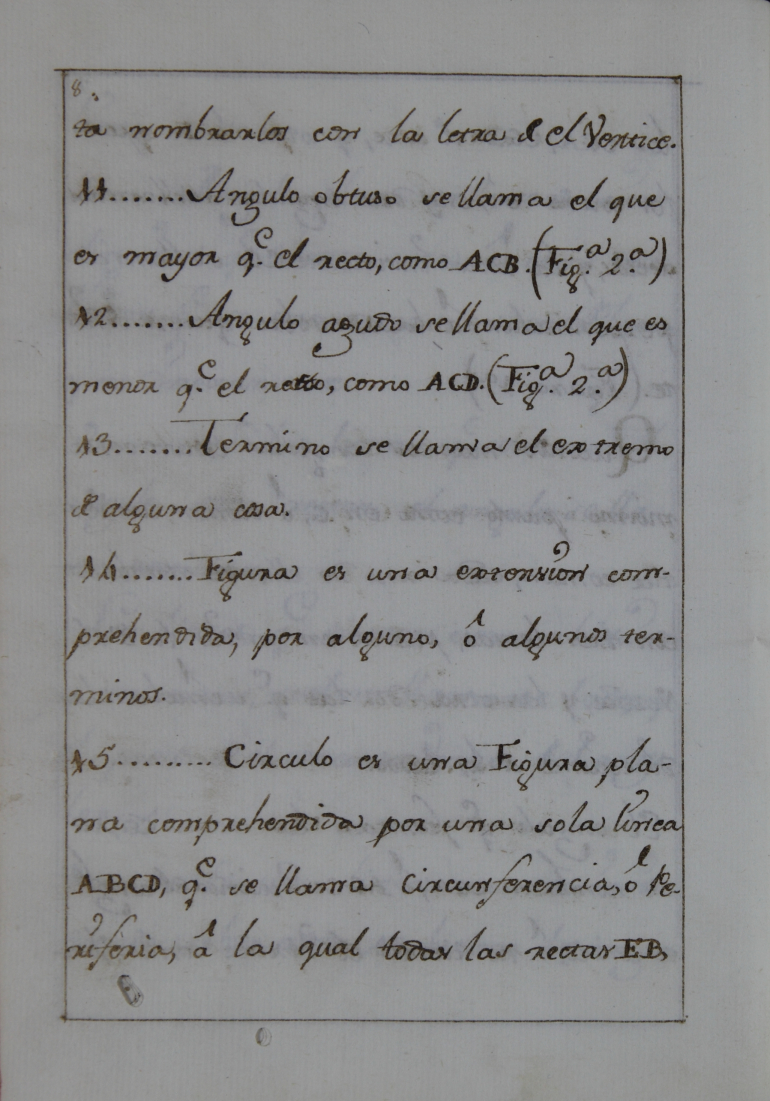 8.
ta nombrarlos con la letra de el Vertice.
11.......Angulo obtuso se llama el que
es mayor q.e el recto, como ACB. (Fig.a 2.a)
12.......Angulo agudo se llama el que es
menor q.e el recto, como ACD. (Fig.a 2.a)
13.......Termino se llama el extremo
de alguna cosa.
14.......Figura es una extension com-
prehendida, por alguno, ô algunos ter-
minos.
15.........Circulo es una Figura pla-
na comprehendida por una sola línea
ABCD, q.e se llama Circunferencia, ó Pe-
riferia, â la qual todas las rectas EB,